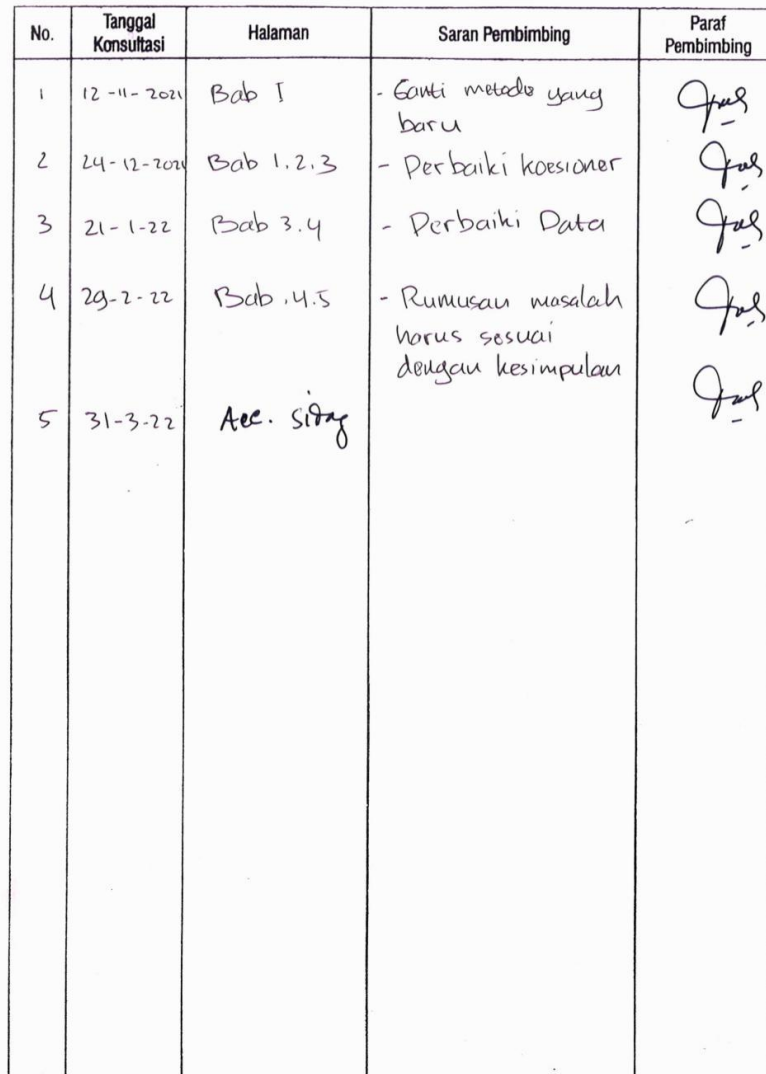 No. Tanggal Konsultasi Halaman Saran Pembimbing Paraf Pembimbing
1 12-11-2021 Bab I - Ganti metode yang
baru
2 24-12-2021 Bab 1.2.3 - Perbaiki koesioner
3 21-1-22 Bab 3.4 - Perbaiki Data
4 29-2-22 Bab.4.5 - Rumusan masalah
harus sesuai
dengan kesimpulan
5 31-3-22 Acc. Sidang